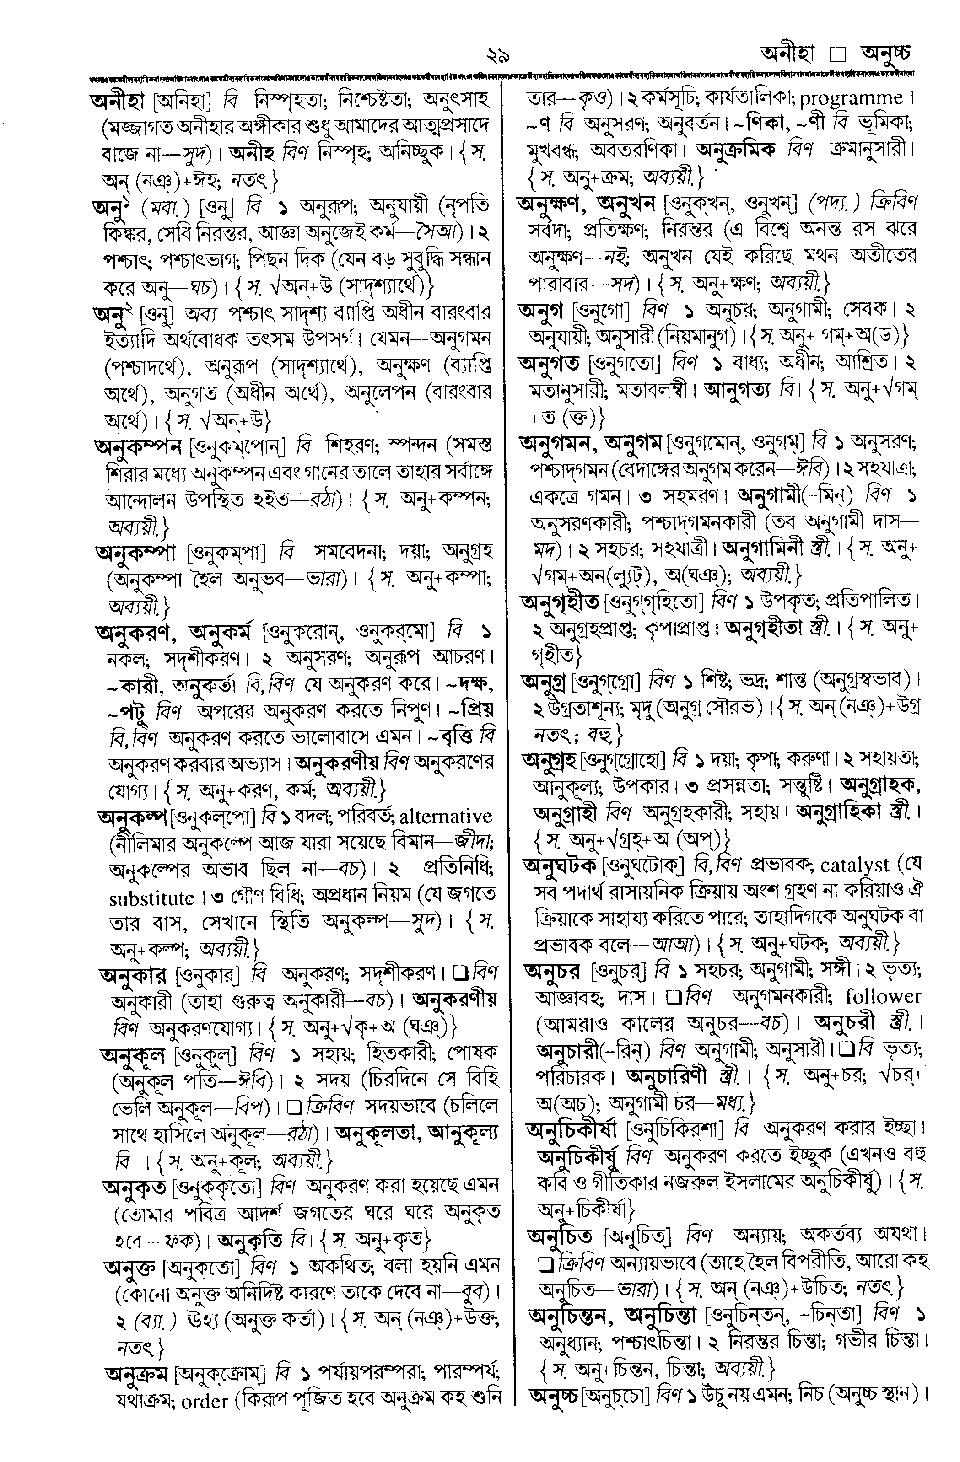 ২৯
অনীহা □ অনুচ্চ
অনীহা [অনিহা] বি নিস্পৃহতা; নিশ্চেষ্টতা; অনুৎসাহ
(মজ্জাগত অনীহার অঙ্গীকার শুধু আমাদের আত্মপ্রসাদে
বাজে না—সুদ)। অনীহ বিণ নিস্পৃহ; অনিচ্ছুক। {স.
অন্ (নঞ্)+ঈহ; নতৎ}
অনু১ (মবা.) [ওনু] বি ১ অনুরূপ; অনুযায়ী (নৃপতি
কিঙ্কর, সেবি নিরন্তর, আজ্ঞা অনুজেই কর্ম—সৈআ)। ২
পশ্চাৎ; পশ্চাৎভাগ; পিছন দিক (যেন বড় সুবুদ্ধি সন্ধান
করে অনু—ঘচ)। {স. √অন্+উ (সাদৃশ্যার্থে)}
অনু২ [ওনু] অব্য পশ্চাৎ সাদৃশ্য ব্যাপ্তি অধীন বারংবার
ইত্যাদি অর্থবোধক তৎসম উপসর্গ। যেমন—অনুগমন
(পশ্চাদর্থে), অনুরূপ (সাদৃশ্যার্থে), অনুক্ষণ (ব্যাপ্তি
অর্থে), অনুগত (অধীন অর্থে), অনুলেপন (বারংবার
অর্থে)। {স. √অন্+উ}
অনুকম্পন [ওনুকম্‌পোন্] বি শিহরণ; স্পন্দন (সমস্ত
শিরার মধ্যে অনুকম্পন এবং গানের তালে তাহার সর্বাঙ্গে
আন্দোলন উপস্থিত হইত—রঠা)। {স. অনু+কম্পন;
অব্যয়ী.}
অনুকম্পা [ওনুকম্‌পা] বি সমবেদনা; দয়া; অনুগ্রহ
(অনুকম্পা হৈল অনুভব—ভারা)। {স. অনু+কম্পা;
অব্যয়ী.}
অনুকরণ, অনুকর্ম [ওনুকরোন্, ওনুকর্‌মো] বি ১
নকল; সদৃশীকরণ। ২ অনুসরণ; অনুরূপ আচরণ।
~কারী, অনুকর্তা বি,বিণ যে অনুকরণ করে। ~দক্ষ,
~পটু বিণ অপরের অনুকরণ করতে নিপুণ। ~প্রিয়
বি,বিণ অনুকরণ করতে ভালোবাসে এমন। ~বৃত্তি বি
অনুকরণ করবার অভ্যাস। অনুকরণীয় বিণ অনুকরণের
যোগ্য। {স. অনু+করণ, কর্ম; অব্যয়ী.}
অনুকল্প [ওনুকল্‌পো] বি ১ বদল; পরিবর্ত; alternative
(নীলিমার অনুকল্পে আজ যারা সয়েছে বিমান—জীদা;
অনুকল্পের অভাব ছিল না—বচ)। ২ প্রতিনিধি;
substitute। ৩ গৌণ বিধি; অপ্রধান নিয়ম (যে জগতে
তার বাস, সেখানে স্থিতি অনুকল্প—সুদ)। {স.
অনু+কল্প; অব্যয়ী.}
অনুকার [ওনুকার্] বি অনুকরণ; সদৃশীকরণ। □ বিণ
অনুকারী (তাহা গুরুত্ব অনুকারী—বচ)। অনুকরণীয়
বিণ অনুকরণযোগ্য। {স. অনু+√কৃ+অ (ঘঞ্)}
অনুকূল [ওনুকুল্] বিণ ১ সহায়; হিতকারী; পোষক
(অনুকূল পতি—ঈবি)। ২ সদয় (চিরদিনে সে বিহি
ভেলি অনুকূল—বিপ)। □ ক্রিবিণ সদয়ভাবে (চলিলে
সাথে হাসিলে অনুকূল—রঠা)। অনুকূলতা, আনুকূল্য
বি । {স. অনু+কূল; অব্যয়ী.}
অনুকৃত [ওনুক্‌কৃতো] বিণ অনুকরণ করা হয়েছে এমন
(তোমার পবিত্র আদর্শ জগতের ঘরে ঘরে অনুকৃত
হবে—ফক)। অনুকৃতি বি। {স. অনু+কৃত}
অনুক্ত [অনুক্‌তো] বিণ ১ অকথিত; বলা হয়নি এমন
(কোনো অনুক্ত অনির্দিষ্ট কারণে তাকে দেবে না—বুব)।
২ (ব্যা.) উহ্য (অনুক্ত কর্তা)। {স. অন্ (নঞ্)+উক্ত,
নতৎ}
অনুক্রম [অনুক্‌ক্রোম্] বি ১ পর্যায়পরম্পরা; পারম্পর্য;
যথাক্রম; order (কিরূপ পূজিত হবে অনুক্রম কহ শুনি
তার—কৃও)। ২ কর্মসূচি; কার্যতালিকা; programme।
~ণ বি অনুসরণ; অনুবর্তন। ~ণিকা, ~ণী বি ভূমিকা;
মুখবন্ধ; অবতরণিকা। অনুক্রমিক বিণ ক্রমানুসারী।
{স. অনু+ক্রম; অব্যয়ী.}
অনুক্ষণ, অনুখন [ওনুক্‌খন্, ওনুখন্] (পদ্য.) ক্রিবিণ
সর্বদা; প্রতিক্ষণ; নিরন্তর (এ বিশ্বে অনন্ত রস ঝরে
অনুক্ষণ—নই; অনুখন যেই করিছে মথন অতীতের
পারাবার—সদ)। {স. অনু+ক্ষণ; অব্যয়ী.}
অনুগ [ওনুগো] বিণ ১ অনুচর; অনুগামী; সেবক। ২
অনুযায়ী; অনুসারী (নিয়মানুগ)। {স. অনু+ গম্+অ(ড)}
অনুগত [ওনুগতো] বিণ ১ বাধ্য; অধীন; আশ্রিত। ২
মতানুসারী; মতাবলম্বী। আনুগত্য বি। {স. অনু+√গম্
।ত (ক্ত)}
অনুগমন, অনুগম [ওনুগমোন্, ওনুগম্] বি ১ অনুসরণ;
পশ্চাদগমন (বেদাঙ্গের অনুগম করেন—ঈবি)। ২ সহযাত্রা;
একত্রে গমন। ৩ সহমরণ। অনুগামী(-মিন্) বিণ ১
অনুসরণকারী; পশ্চাদগমনকারী (তব অনুগামী দাস—
মদ)। ২ সহচর; সহযাত্রী। অনুগামিনী স্ত্রী.। {স. অনু+
√গম্+অন(ল্যুট্), অ(ঘঞ্); অব্যয়ী.}
অনুগৃহীত [ওনুগ্‌গৃহিতো] বিণ ১ উপকৃত; প্রতিপালিত।
২ অনুগ্রহপ্রাপ্ত; কৃপাপ্রাপ্ত। অনুগৃহীতা স্ত্রী.। {স. অনু+
গৃহীত}
অনুগ্র [ওনুগ্‌গ্রো] বিণ ১ শিষ্ট; ভদ্র; শান্ত (অনুগ্রস্বভাব)।
২ উগ্রতাশূন্য; মৃদু (অনুগ্র সৌরভ)। {স. অন্ (নঞ্)+উগ্র
নতৎ; বহু.}
অনুগ্রহ [ওনুগ্‌গ্রোহো] বি ১ দয়া; কৃপা; করুণা। ২ সহায়তা;
আনুকূল্য; উপকার। ৩ প্রসন্নতা; সন্তুষ্টি। অনুগ্রাহক,
অনুগ্রাহী বিণ অনুগ্রহকারী; সহায়। অনুগ্রাহিকা স্ত্রী.।
{স. অনু+√গ্রহ্+অ (অপ্)}
অনুঘটক [ওনুঘটোক্] বি,বিণ প্রভাবক; catalyst (যে
সব পদার্থ রাসায়নিক ক্রিয়ায় অংশ গ্রহণ না করিয়াও ঐ
ক্রিয়াকে সাহায্য করিতে পারে; তাহাদিগকে অনুঘটক বা
প্রভাবক বলে—আআ)। {স. অনু+ঘটক; অব্যয়ী.}
অনুচর [ওনুচর্] বি ১ সহচর; অনুগামী; সঙ্গী। ২ ভৃত্য;
আজ্ঞাবহ; দাস। □ বিণ অনুগমনকারী; follower
(আমরাও কালের অনুচর—বচ)। অনুচরী স্ত্রী.।
অনুচারী(-রিন্) বিণ অনুগামী; অনুসারী। □ বি ভৃত্য;
পরিচারক। অনুচারিণী স্ত্রী.। {স. অনু+চর; √চর্+
অ(অচ্); অনুগামী চর—মধ্য.}
অনুচিকীর্ষা [ওনুচিকির্‌শা] বি অনুকরণ করার ইচ্ছা।
অনুচিকীর্ষু বিণ অনুকরণ করতে ইচ্ছুক (এখনও বহু
কবি ও গীতিকার নজরুল ইসলামের অনুচিকীর্ষু)। {স.
অনু+চিকীর্ষা}
অনুচিত [অনুচিত্] বিণ অন্যায়; অকর্তব্য অযথা।
□ ক্রিবিণ অন্যায়ভাবে (তাহে হৈল বিপরীতি, আরো কহ
অনুচিত—ভারা)। {স. অন্ (নঞ্)+উচিত; নতৎ}
অনুচিন্তন, অনুচিন্তা [ওনুচিন্‌তন্, -চিন্‌তা] বিণ ১
অনুধ্যান; পশ্চাৎচিন্তা। ২ নিরন্তর চিন্তা; গভীর চিন্তা।
{স. অনু+চিন্তন, চিন্তা; অব্যয়ী.}
অনুচ্চ [অনুচ্‌চো] বিণ ১ উঁচু নয় এমন; নিচ (অনুচ্চ স্থান)।